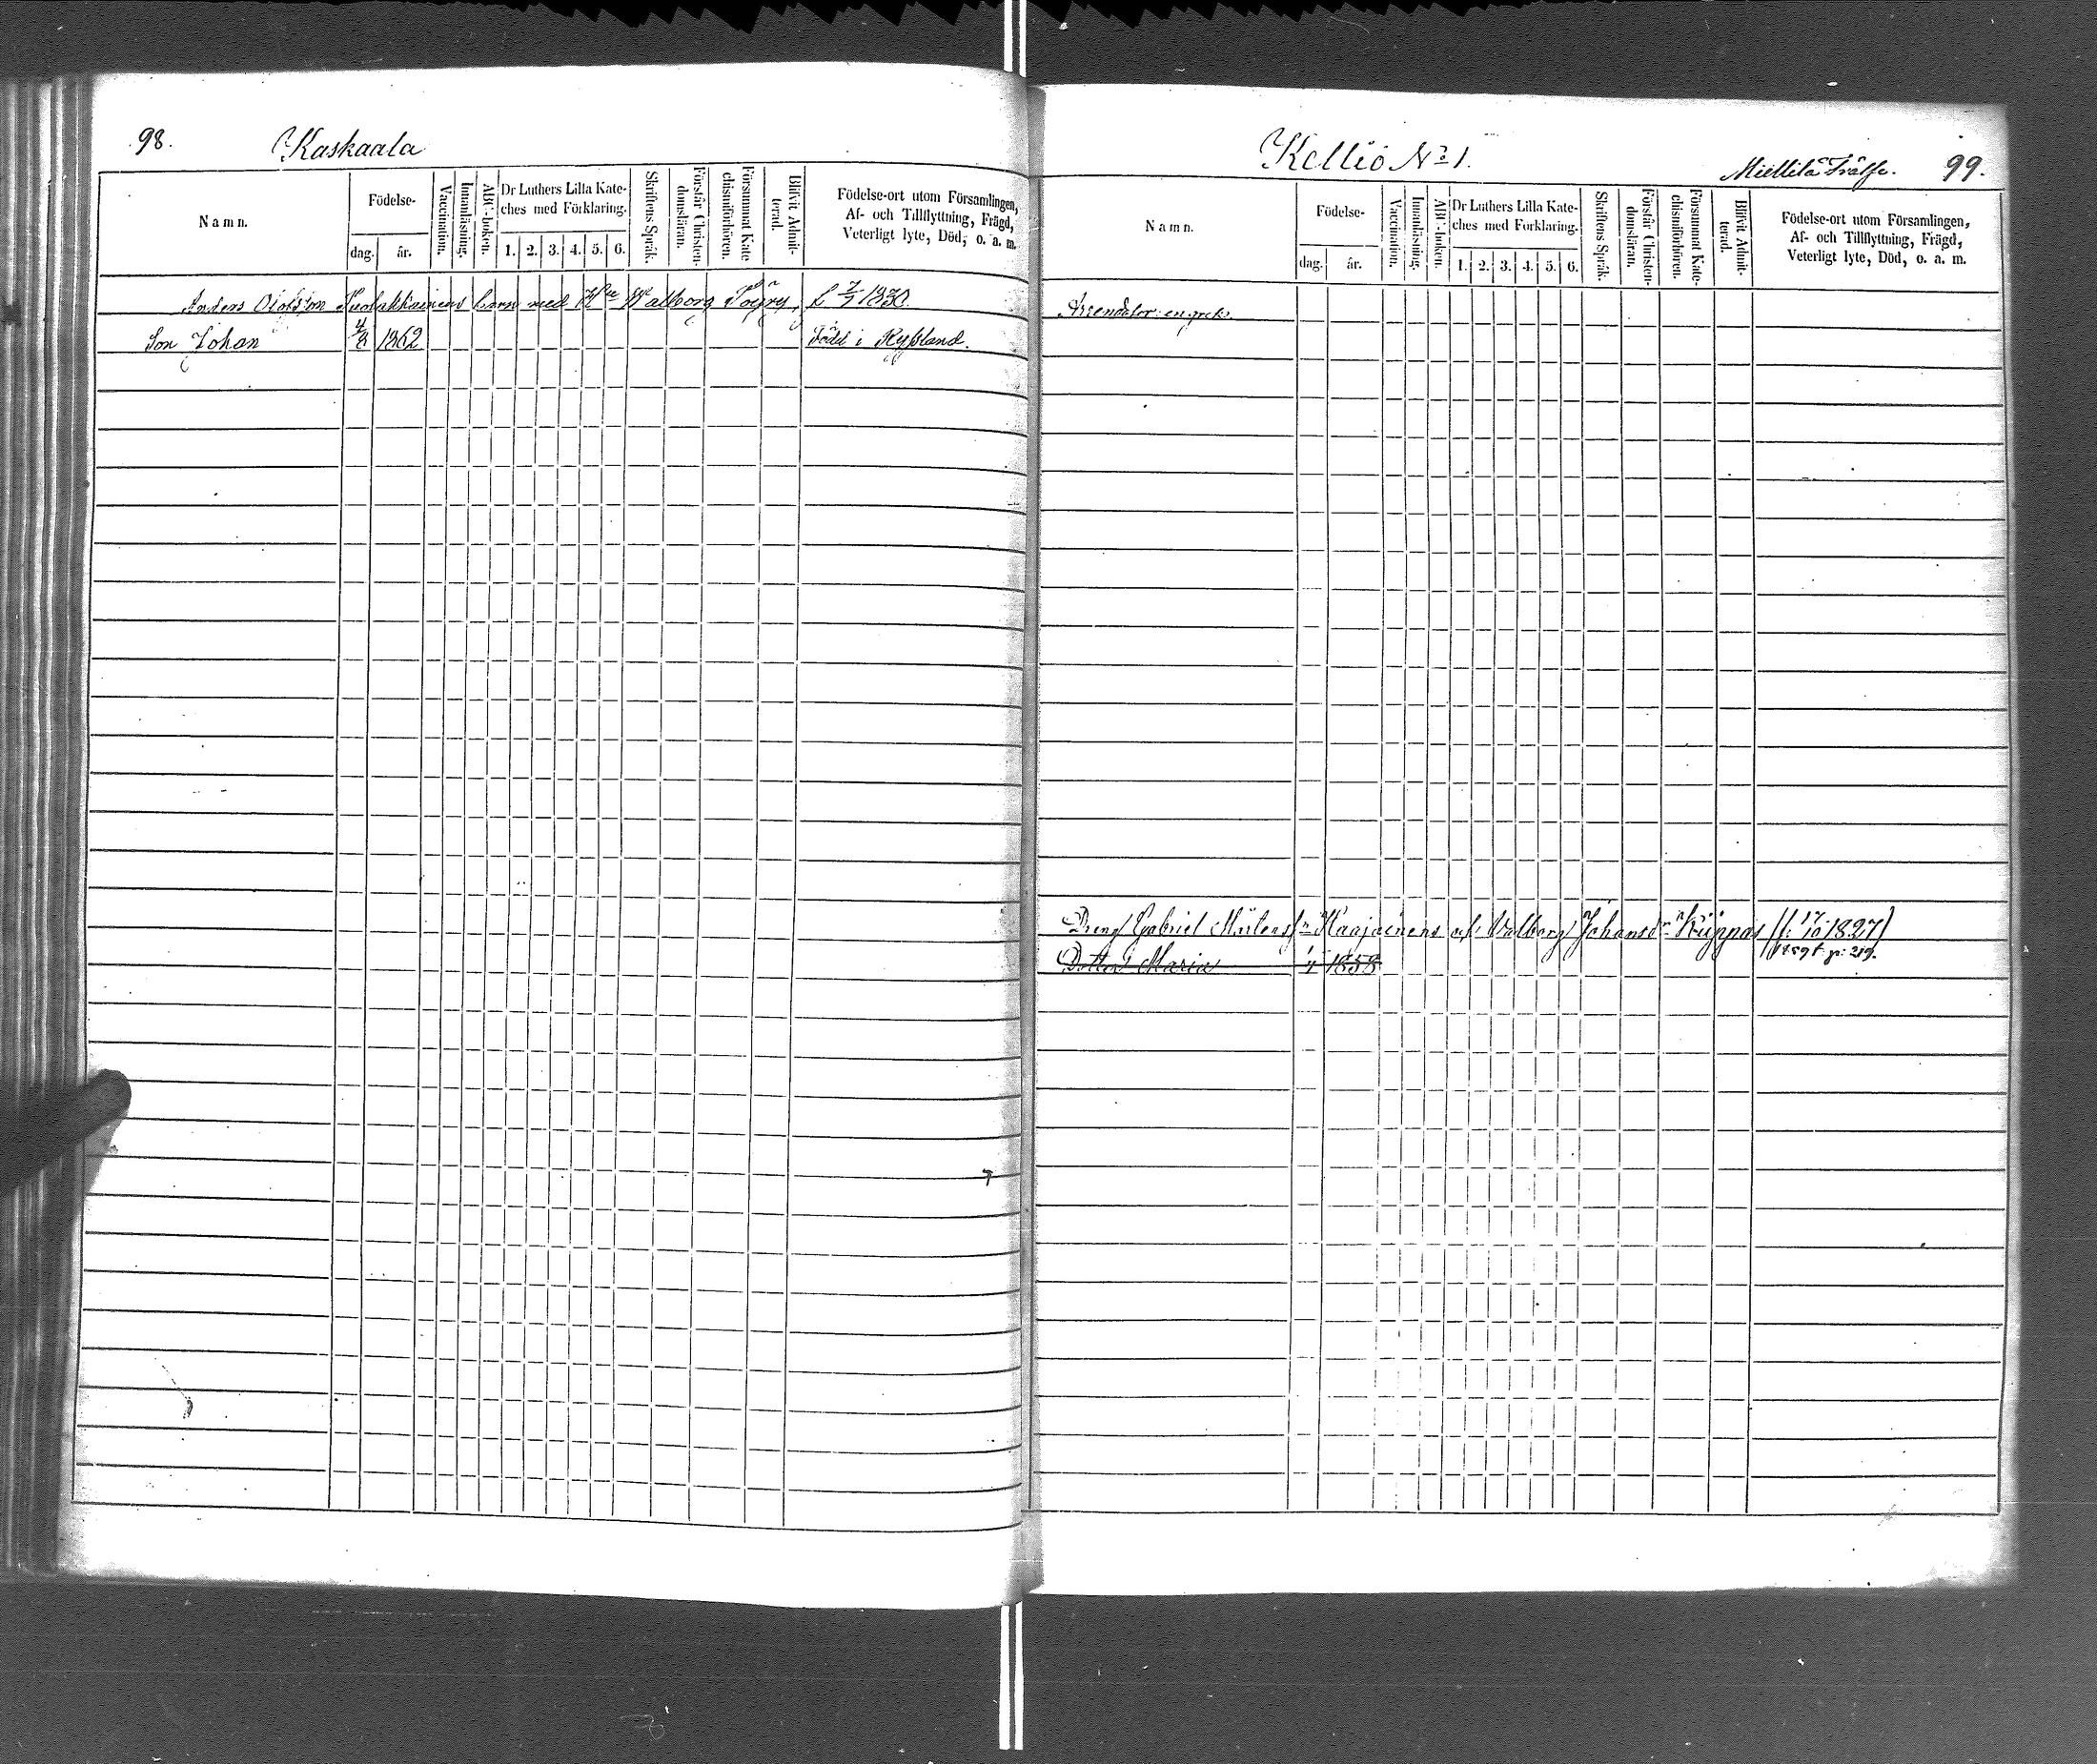 98. Kaskaala
Namn. Födelse- dag. år. Vaccination. Innanläsning. ABC-boken. Dr Luthers Lilla Kate-
ches med Förklaring. 1. 2. 3. 4. 5. 6. Skriftens Språk. Förstår Christen-
domsläran. Försummat Kate
chismiförhören. Blifvit Admit-
terad. Födelse-ort utom Församlingen,
Af- och Tillflyttning, Frägd,
Veterligt lyte, Död, o. a. m.
Anders Olofs:on barn med Hu Walborg Töyry, f. 7/7 1830.
Son Johan 4/8 1862 Född i Ryßland.
Kelliö No 1. Miettilä Frälse. 99.
Namn. Födelse- dag. år. Vaccination. Innanläsning. ABC-boken. Dr Luthers Lilla Kate-
ches med Förklaring. 1. 2. 3. 4. 5. 6. Skriftens Språk. Förstår Christen-
domsläran. Försummat Kate-
chismiförhören. Blifvit Admit-
terad. Födelse-ort utom Församlingen,
Af- och Tillflyttning, Frägd,
Veterligt lyte, Död, o. a. m.
Arrendator: en grek.
Dreng Gabriel Mårtensn Kaajainens o/: Valborg Johansdr (f: 17/10 1827)
Dotter Maria 1858 1859 f. p: 219.